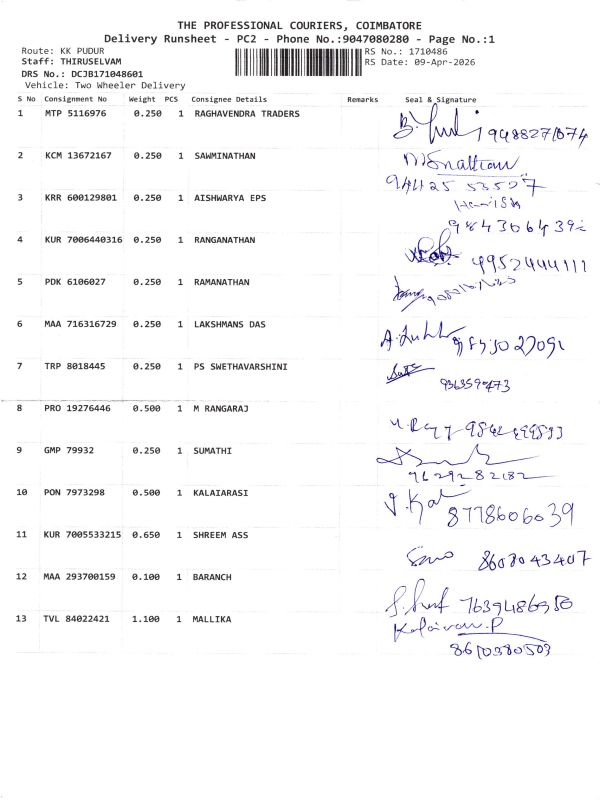 THE PROFESSIONAL COURIERS, COIMBATORE
Delivery Runsheet - PC2 - Phone No.:9047080280 - Page No.:1
Route: KK PUDUR RS No.: 1710486
Staff: THIRUSELVAM RS Date: 09-Apr-2026
DRS No.: DCJB171048601
Vehicle: Two Wheeler Delivery
S No Consignment No Weight PCS Consignee Details Remarks Seal & Signature
1 MTP 5116976 0.250 1 RAGHAVENDRA TRADERS
2 KCM 13672167 0.250 1 SAWMINATHAN
3 KRR 600129801 0.250 1 AISHWARYA EPS
4 KUR 7006440316 0.250 1 RANGANATHAN
9952444111
5 PDK 6106027 0.250 1 RAMANATHAN
6 MAA 716316729 0.250 1 LAKSHMANS DAS
7 TRP 8018445 0.250 1 PS SWETHAVARSHINI
8 PRO 19276446 0.500 1 M RANGARAJ
9 GMP 79932 0.250 1 SUMATHI
9629282182
10 PON 7973298 0.500 1 KALAIARASI
8778606039
11 KUR 7005533215 0.650 1 SHREEM ASS
8608043407
12 MAA 293700159 0.100 1 BARANCH
7639486950
13 TVL 84022421 1.100 1 MALLIKA
8610380503